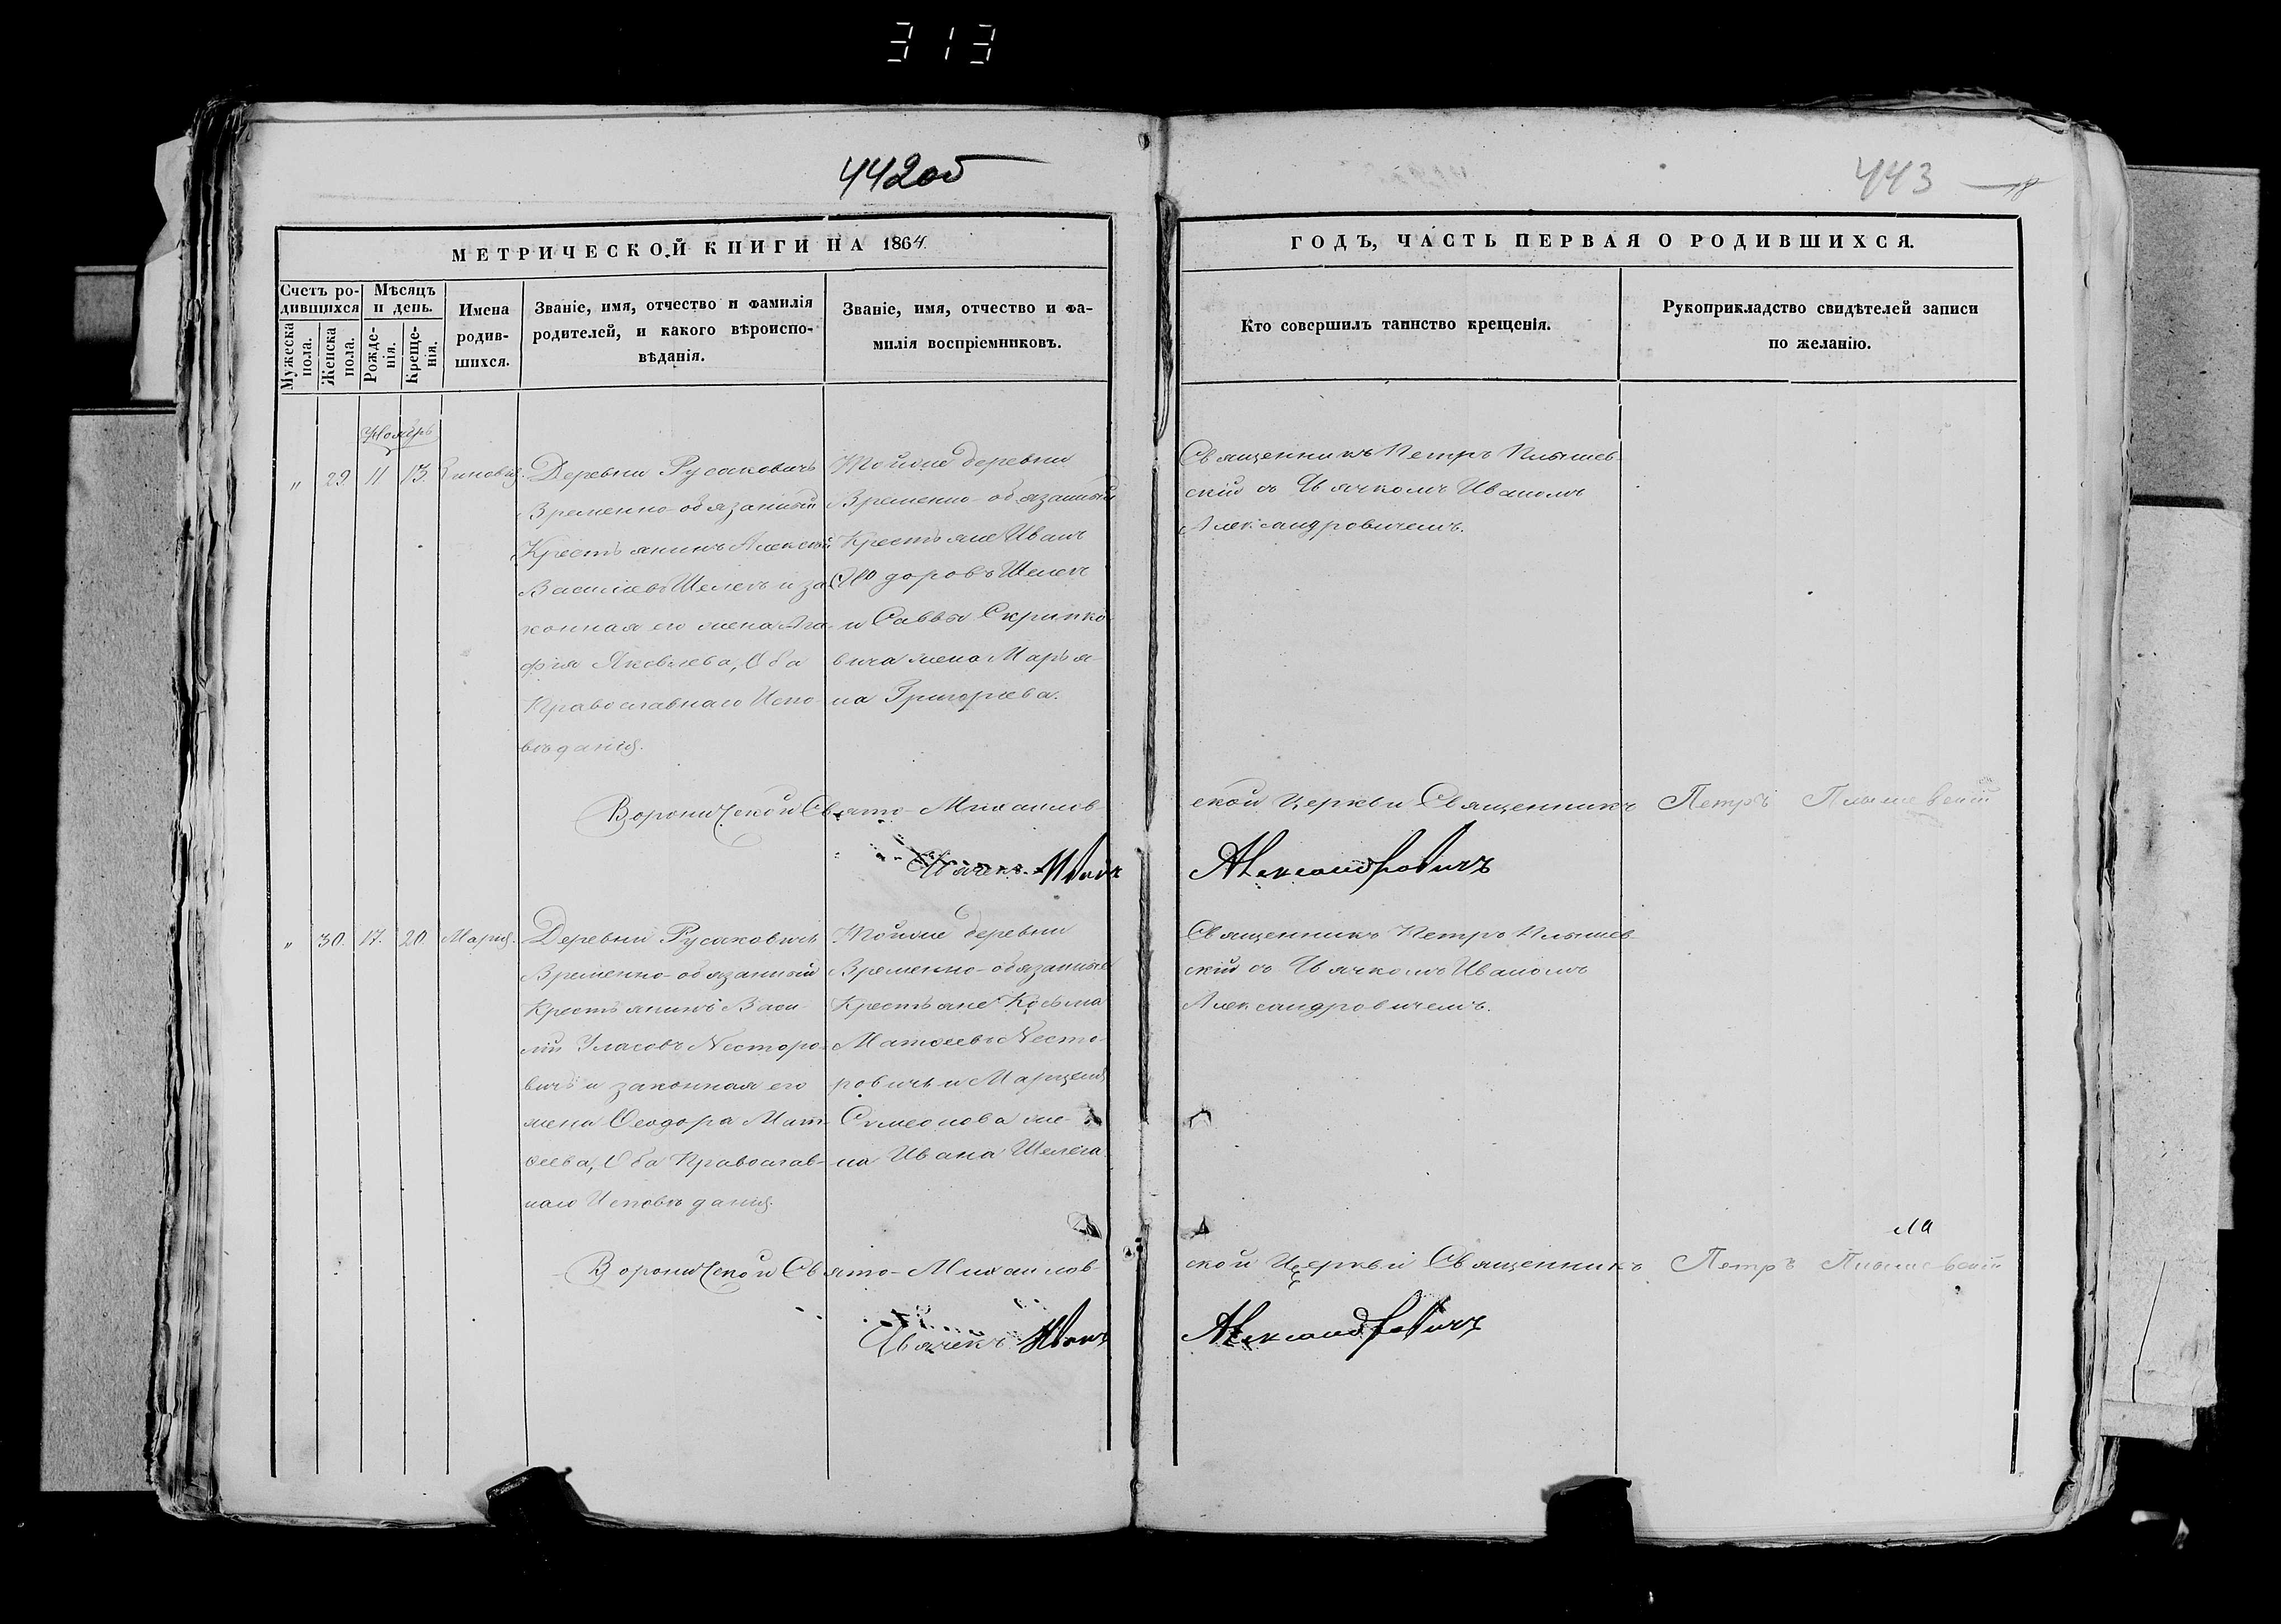 313
442 об
443
МЕТРИЧЕСКОЙ КНИГИ НА 1864.
ГОДЪ, ЧАСТЬ ПЕРВАЯ О РОДИВШИХСЯ.
Счетъ ро-
дившихся
Мужеска
пола.
Женска
пола.
Мѣсяцъ
и день.
Рожде-
нія.
Креще-
нія.
Имена
родив-
шихся.
Званіе, имя, отчество и фамилія
родителей, и какого вѣроиспо-
вѣданія.
Званіе, имя, отчество и фа-
милія воспріемниковъ.
Кто совершилъ таинство крещенія.
Рукоприкладство свидѣтелей записи
по желанію.
Ноябрь
„ 29. 11 13. Зиновія.
Деревни Русаковичъ
Временно-обязанный
Крестьянинъ Алексѣй
Василіевъ Шелегъ и за-
конная его жена Ага-
фія Яковлева, Оба
Православнаго Испо-
вѣданія.
Тойже деревни
Временно-обязанный
Крестьяне Иванъ
Ѳеодоровъ Шелегъ
и Саввы Скрипко-
вича жена Марья-
на Григорьева.
Священникъ Петръ
скій съ Дьячкомъ Иваномъ
Александровичемъ.
Вороничской Свято-Михаилов-
ской Церкви Священникъ Петръ
Дьячекъ Иванъ Александровичъ
„ 30. 17. 20. Марія.
Деревни Русаковичъ
Временно-обязанный
Крестьянинъ Васи-
лій Уласовъ Несторо-
вичъ и законная его
жена Ѳеодора Мат-
ѳеева, Оба Православ-
наго Исповѣданія.
Тойже деревни
Временно-обязанные
Крестьяне Косьма
Матѳеевъ Несто-
ровичъ и Марцеля
Симеонова же-
на Ивана Шелега.
Священникъ Петръ
скій съ Дьячкомъ Иваномъ
Александровичемъ.
Вороничской Свято-Михаилов-
ской Церкви Священникъ Петръ
Дьячекъ Иванъ Александровичъ